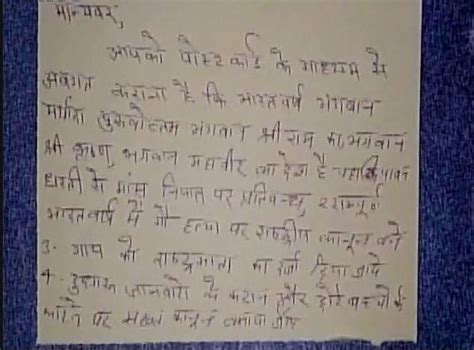 मान्यवर,
आपको पोस्ट कार्ड के माध्यम से
अवगत कराना है कि भारतवर्ष भगवान
मर्यादा पुरुषोत्तम भगवान श्री राम का, भगवान
श्री कृष्ण, भगवान महावीर का देश है यहाँ कि पावन
धरती से मांस निर्यात पर प्रतिबन्ध, 2 सम्पूर्ण
भारतवर्ष में गौ हत्या पर राष्ट्रीय कानून बने
3. गाय को राष्ट्रमाता का दर्जा दिया जाये
4. जानवरों के कटान और छोटे बच्चों के
पर सख्त कानून बनाया जाये